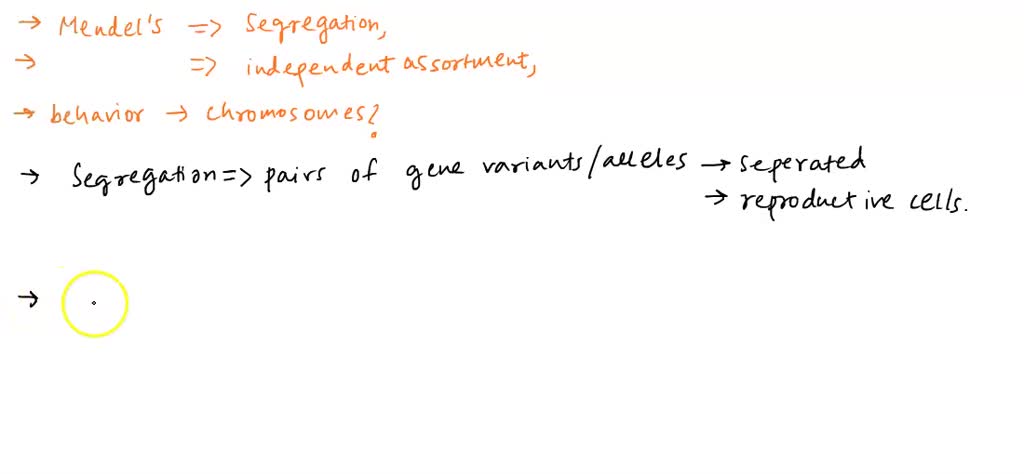 → Mendel's => Segregation,
→ => independent assortment,
→ behavior → chromosomes?
→ Segregation => pairs of gene variants/alleles → seperated
→ reproductive cells.
→